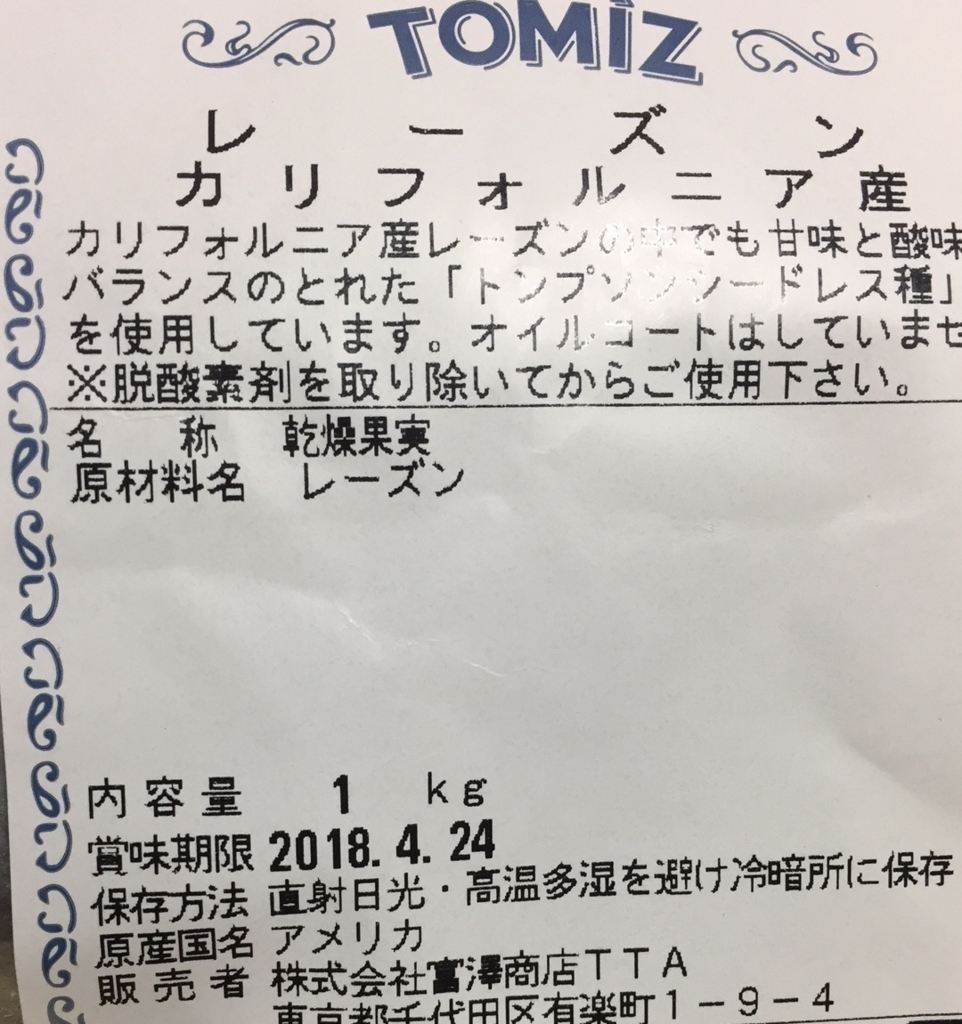 TOMIZ
レーズン
カリフォルニア産
カリフォルニア産レーズンの中でも甘味と酸味
バランスのとれた「トンプソンシードレス種」
を使用しています。オイルコートはしていませ
※脱酸素剤を取り除いてからご使用下さい。
名　称　乾燥果実
原材料名　レーズン
内容量　1　kg
賞味期限 2018. 4. 24
保存方法 直射日光・高温多湿を避け冷暗所に保存
原産国名 アメリカ
販売者 株式会社富澤商店TTA
東京都千代田区有楽町1-9-4